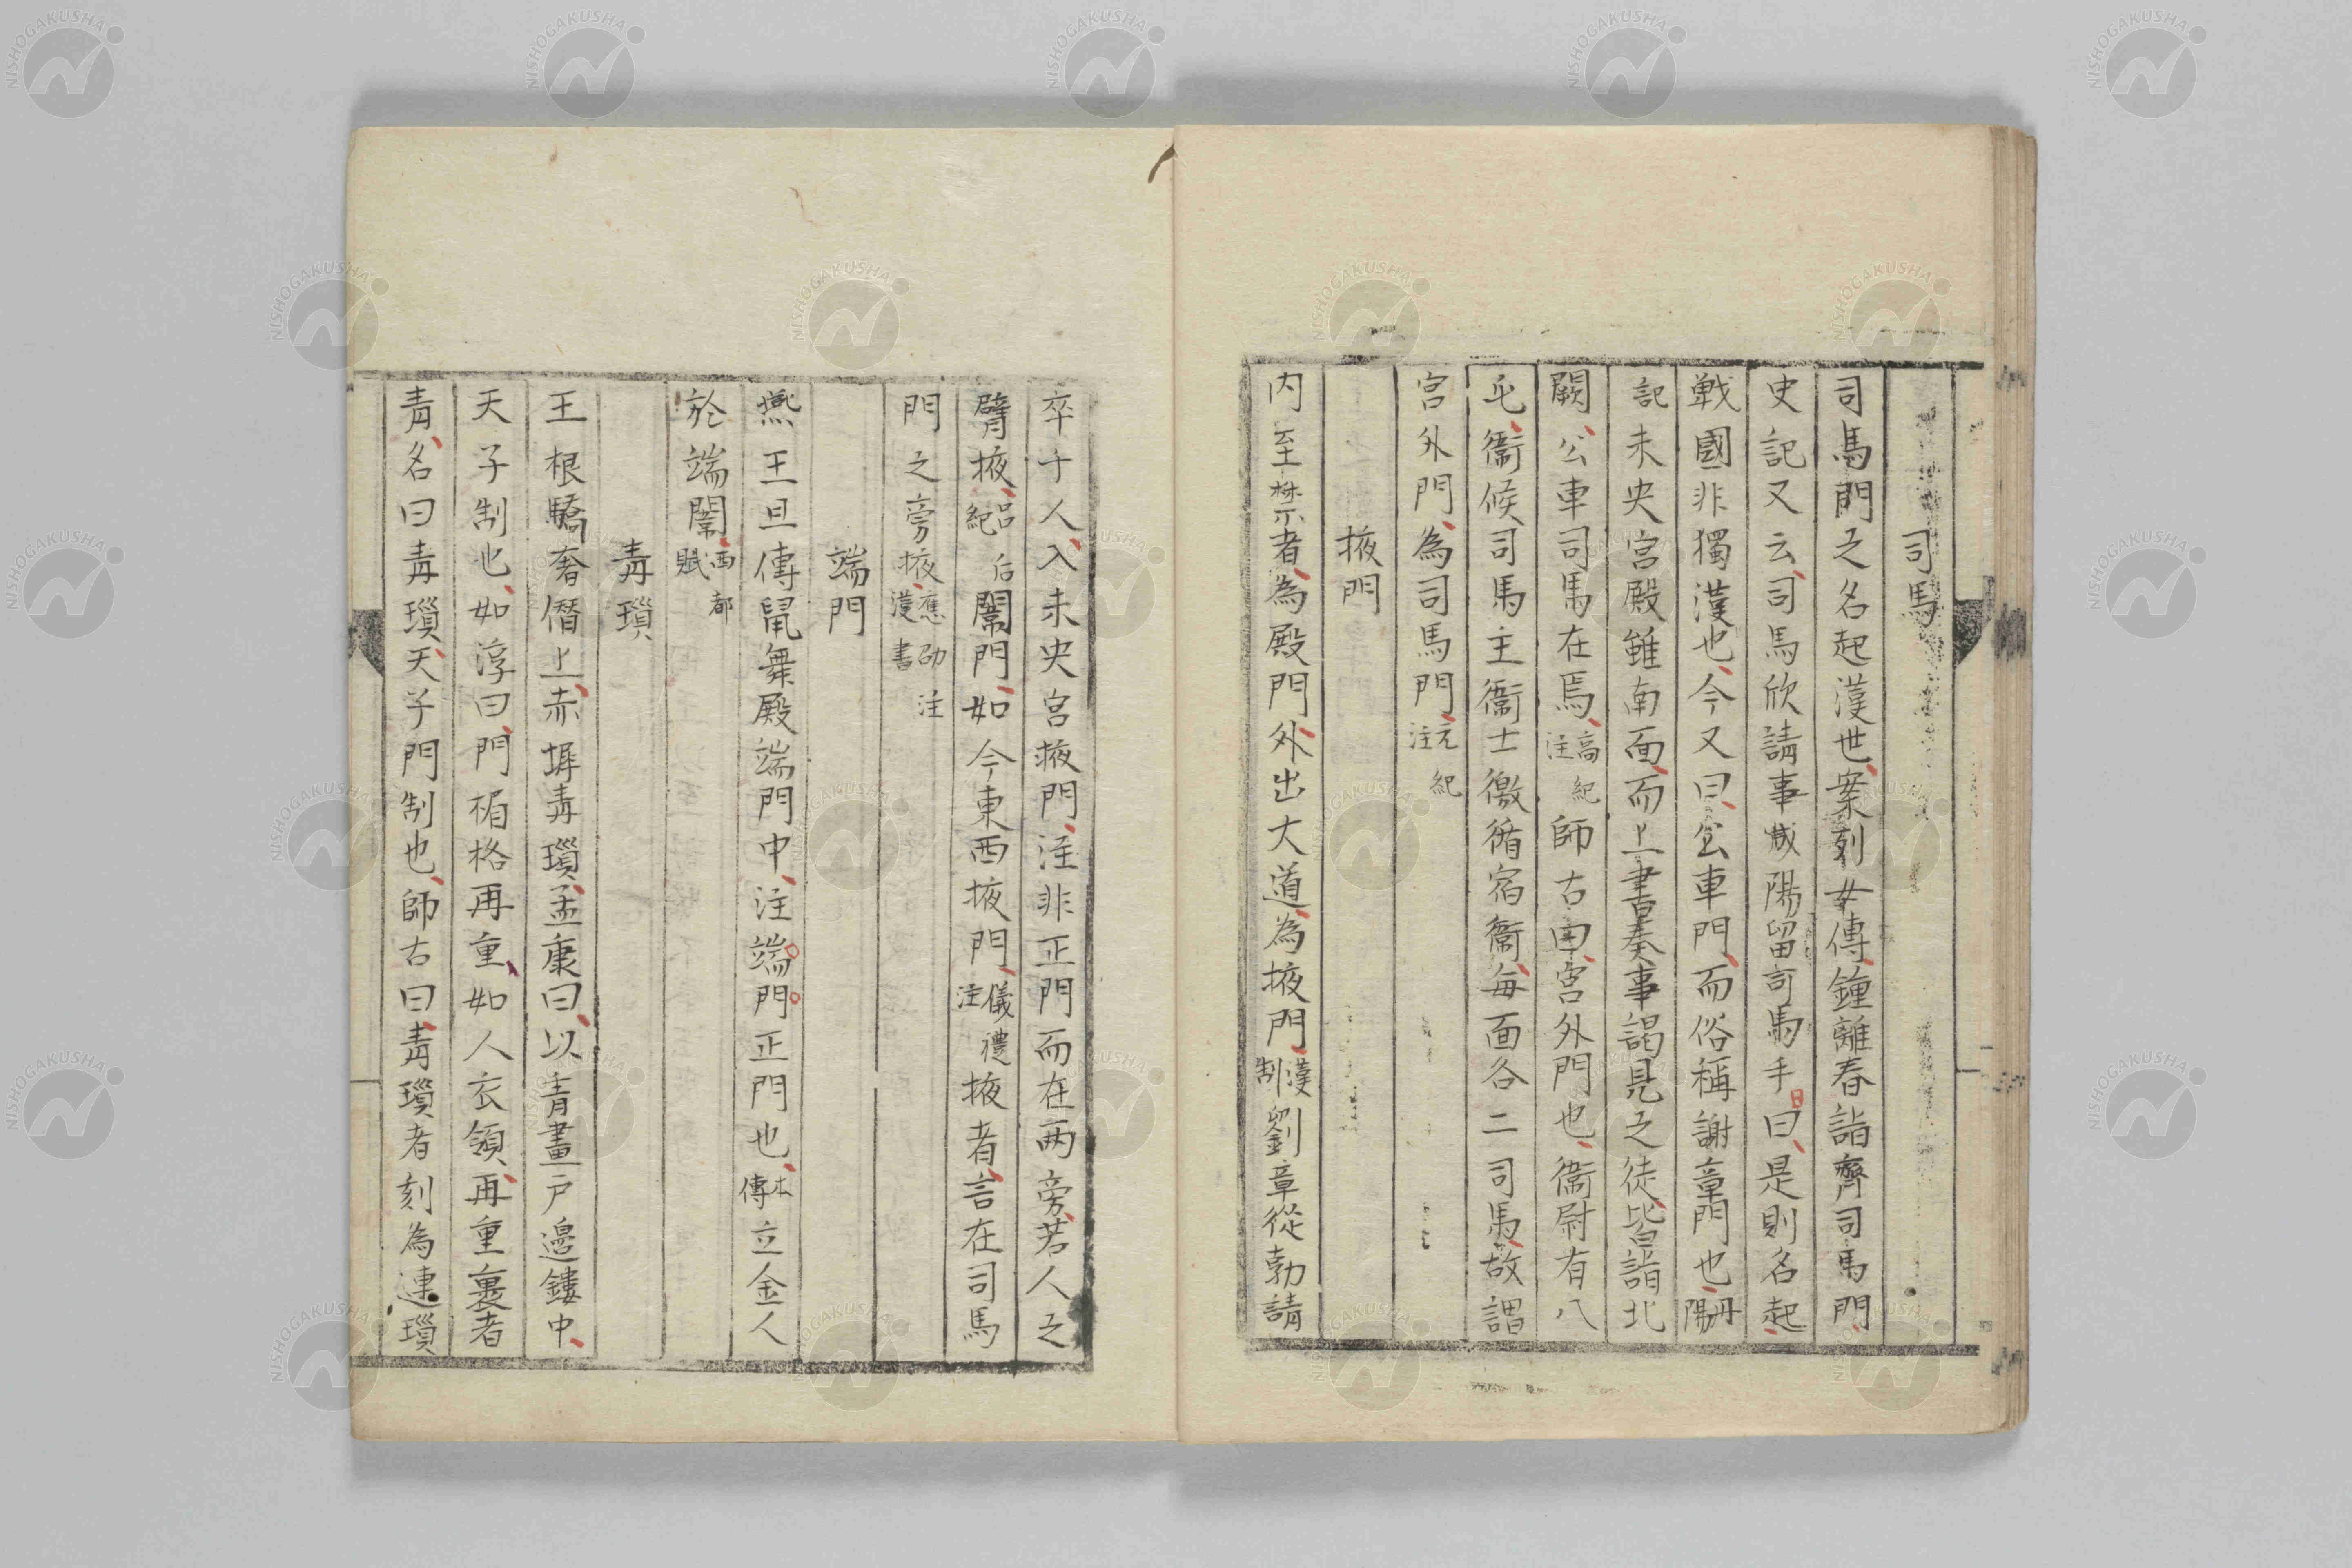 司馬
司馬門之名起漢世案列女傳鍾離春詣齊司馬門
史記又云司馬欣請事咸陽留司馬手日曰是則名起
戰國非獨漢也今又曰公車門而俗稱謝章門也丹陽
記未央宮殿雖南面而上書奏事謁見之徒皆詣北
闕公車司馬在焉高紀注師古曰宮外門也衞尉有八
屯衞候司馬主衞士徼循宿衞每面各二司馬故謂
宮外門為司馬門元紀注
掖門
内至禁者為殿門外出大道為掖門漢制劉章從勃請
卒千人入未央宮掖門注非正門而在兩旁若人之
臂掖呂后紀闈門如今東西掖門儀禮注掖者言在司馬
門之旁掖應劭注漢書
端門
燕王旦傳鼠舞殿端門中注端門正門也本傳立金人
於端闈西都賦
青瑣
王根驕奢僭上赤墀青瑣孟康曰以青畫戶邊鏤中
天子制也如淳曰門楣格再重如人衣領再重裏者
青名曰青瑣天子門制也師古曰青瑣者刻為連瑣
NISHOGAKUSHA